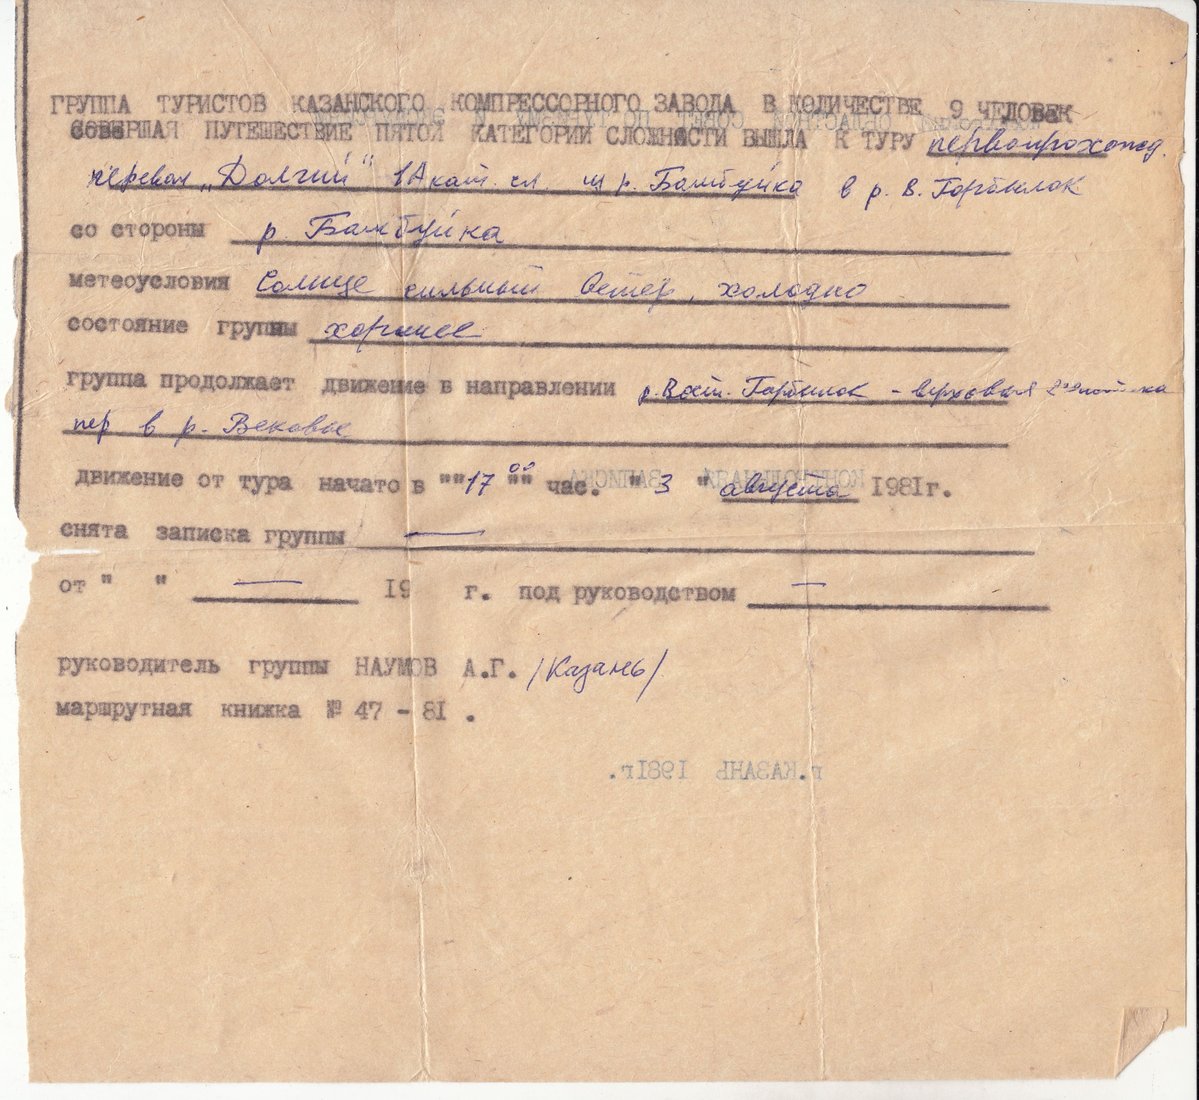 ГРУППА ТУРИСТОВ КАЗАНСКОГО КОМПРЕССОРНОГО ЗАВОДА В КОЛИЧЕСТВЕ 9 ЧЕЛОВЕК
СОВЕРШАЯ ПУТЕШЕСТВИЕ ПЯТОЙ КАТЕГОРИИ СЛОЖНОСТИ ВЫШЛА К ТУРУ первопрохожд.
перевал „Долгий" 1А кат. сл. из р. Бамбуйка в р. В. Горбылок
со стороны р. Бамбуйка
метеоусловия Солнце сильный ветер, холодно
состояние группы хорошее
группа продолжает движение в направлении р. Вост. Горбылок - верховья
пер в р. Вековые
движение от тура начато в ""17 00 "" час. " 3 " августа 1981г.
КОНТРОЛЬНАЯ ЗАПИСКА
снята записка группы —
от " " — 19 г. под руководством —
руководитель группы НАУМОВ А.Г. /Казань/
маршрутная книжка № 47 - 81 .
г.КАЗАНЬ 1981г.